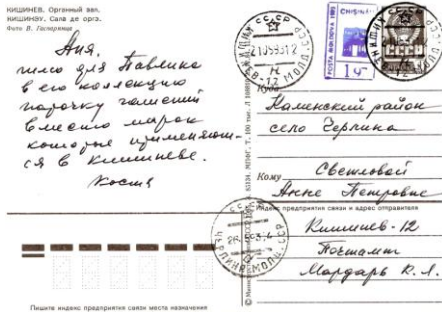 КИШИНЕВ. Органный зал.
КИШИНЭУ. Сала де оргэ.
Фото В.
Аня,
для Павлика
в его коллекцию
парочку гашений
вместо марок
которые применяют-
ся в Кишиневе.
Костя
Пишите индекс предприятия связи места назначения
CHIȘINĂU
POSTA MOLDOVA 1993
СССР
Куда
Каменский район
село Черлина
Кому Светловой
Анне Петровне
Индекс предприятия связи и адрес отправителя
Кишинев-12
Почтамт
Мардарь К. Л.